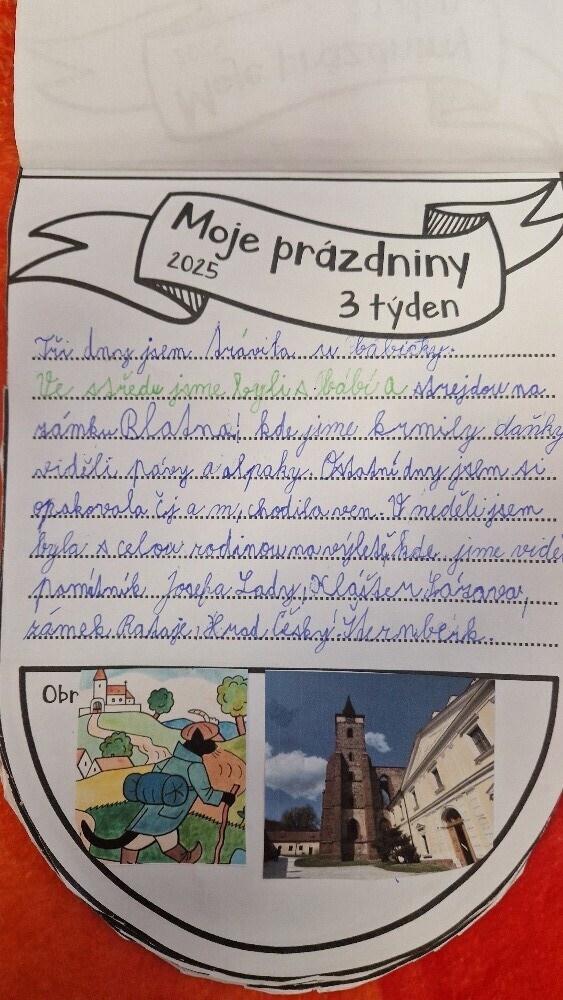 Moje prázdniny
2025
3 týden
Tři dny jsem trávila u babičky.
Ve středu jsme byli s bábí a strejdou na
zámku Blatna, kde jsme krmily daňky
viděli pávy a alpaky. Ostatní dny jsem si
opakovala čj a m, chodila ven. V neděli jsem
byla s celou rodinou na výletě, kde jsme vidě
pomítník Josefa Lady, Klášter Sázava,
zámek Rataje, Hrad Český Šternberk.
Obr